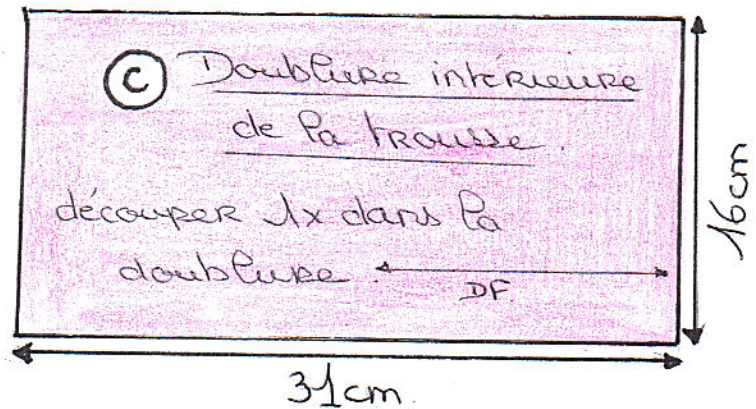 C Doublure intérieure
de la trousse.
découper 1x dans la
doublure.
DF.
16cm
31cm.